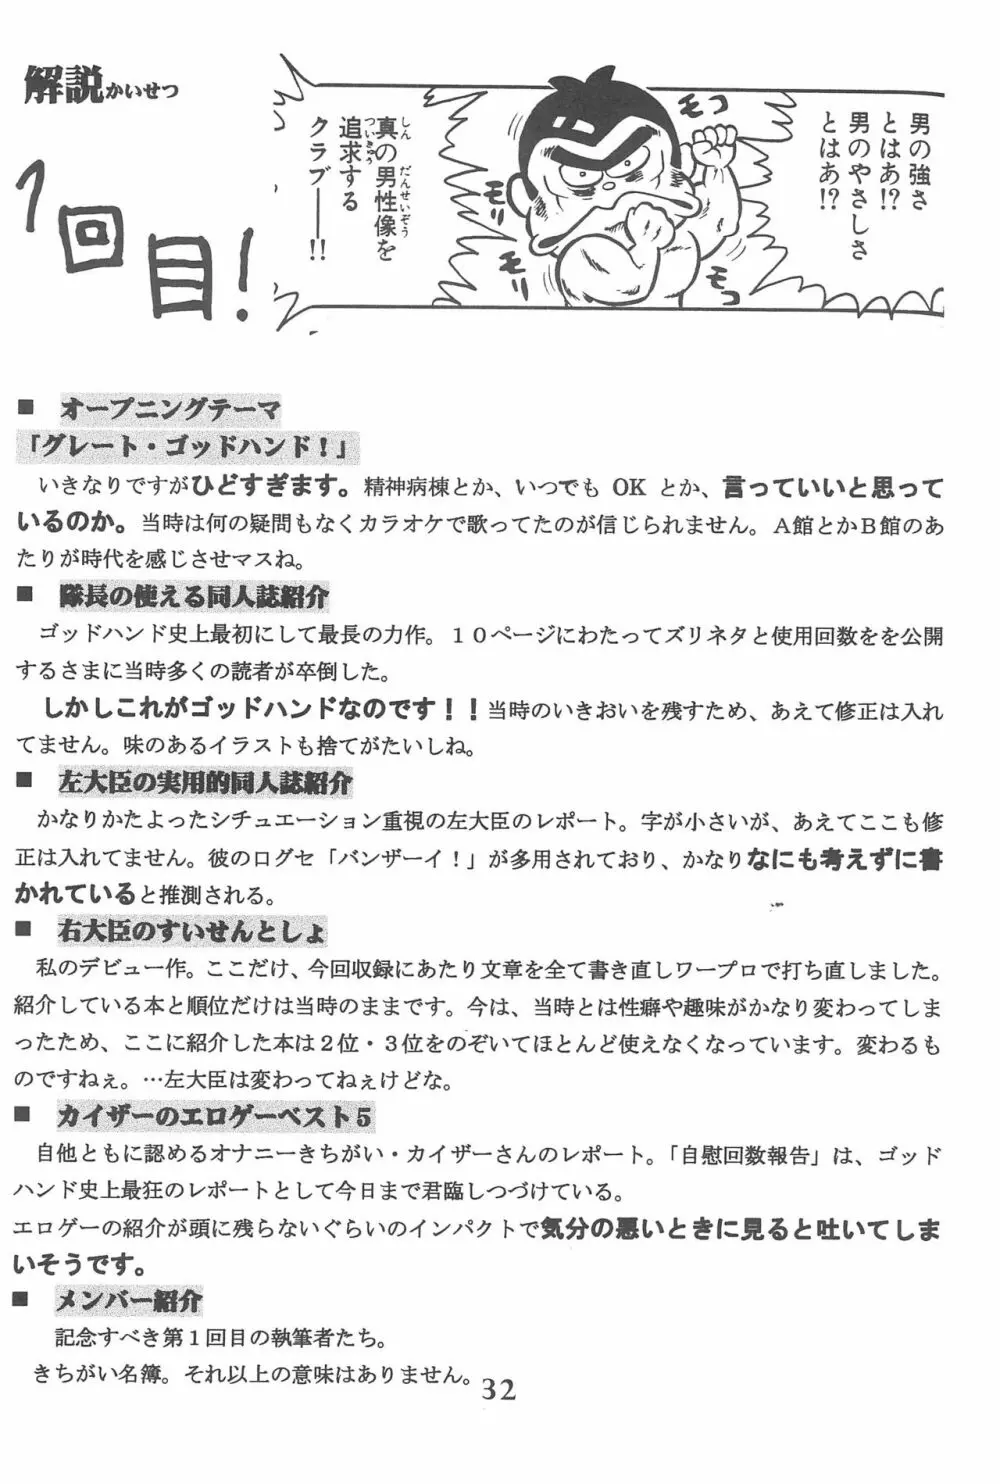 解説かいせつ
1回目!
男の強さ
とはあ!?
男のやさしさ
とはあ!?
モコ
モコ
モリ
モリ
真の男性像を
しん だんせいぞう
追求する
ついきゅう
クラブ――!!
■ オープニングテーマ
「グレート・ゴッドハンド！」
いきなりですがひどすぎます。精神病棟とか、いつでも OK とか、言っていいと思って
いるのか。当時は何の疑問もなくカラオケで歌ってたのが信じられません。A館とかB館のあ
たりが時代を感じさせマスね。
■ 隊長の使える同人誌紹介
ゴッドハンド史上最初にして最長の力作。１０ページにわたってズリネタと使用回数をを公開
するさまに当時多くの読者が卒倒した。
しかしこれがゴッドハンドなのです！！当時のいきおいを残すため、あえて修正は入れ
てません。味のあるイラストも捨てがたいしね。
■ 左大臣の実用的同人誌紹介
かなりかたよったシチュエーション重視の左大臣のレポート。字が小さいが、あえてここも修
正は入れてません。彼のログセ「バンザーイ！」が多用されており、かなりなにも考えずに書
かれていると推測される。
■ 右大臣のすいせんとしょ
私のデビュー作。ここだけ、今回収録にあたり文章を全て書き直しワープロで打ち直しました。
紹介している本と順位だけは当時のままです。今は、当時とは性癖や趣味がかなり変わってしま
ったため、ここに紹介した本は２位・３位をのぞいてほとんど使えなくなっています。変わるも
のですねぇ。…左大臣は変わってねぇけどな。
■ カイザーのエロゲーベスト５
自他ともに認めるオナニーきちがい・カイザーさんのレポート。「自慰回数報告」は、ゴッド
ハンド史上最狂のレポートとして今日まで君臨しつづけている。
エロゲーの紹介が頭に残らないぐらいのインパクトで気分の悪いときに見ると吐いてしま
いそうです。
■ メンバー紹介
記念すべき第１回目の執筆者たち。
きちがい名簿。それ以上の意味はありません。
32